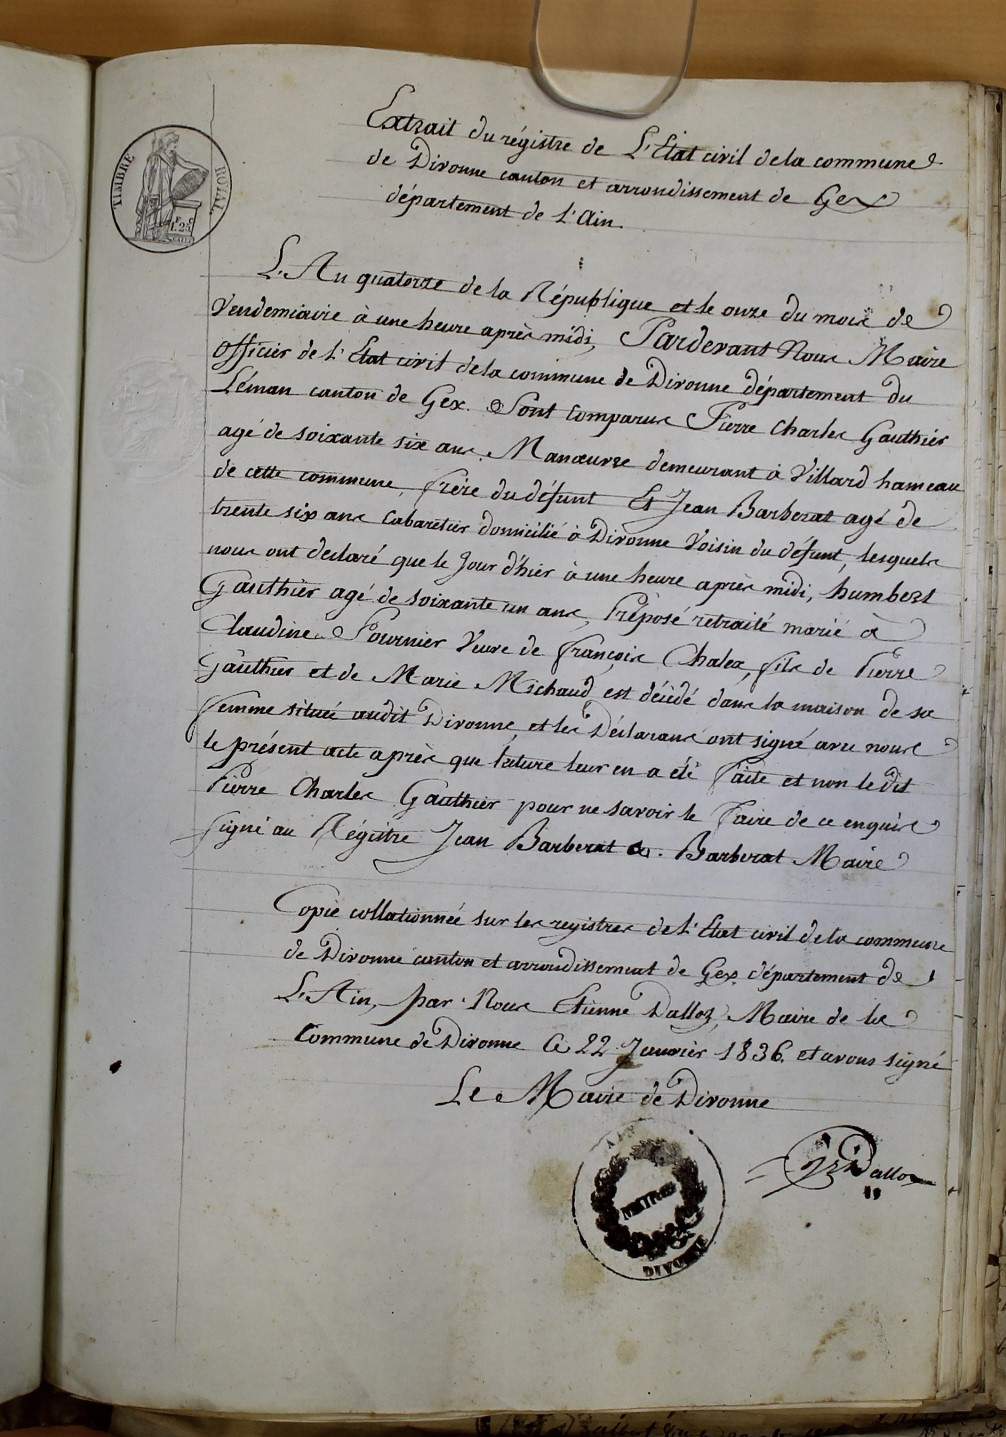 TIMBRE ROYAL
1f 25c
Extrait du régistre de L'Etat civil de la commune
de Divonne canton et arrondissement de Gex
département de l'Ain.
L'An quatorze de la République et le onze du mois de
Vendemiaire à une heure après midi, Pardevant Nous Maire
officier de l'Etat civil de la commune de Divonne département du
Léman canton de Gex. Sont Comparus Pierre Charles Gauthier
agé de soixante six ans, Manœuvre demeurant à Villard hameau
de cette commune, frère du défunt Et Jean Barberat agé de
trente six ans Cabaretier domicilié à Divonne Voisin du défunt, lesquels
nous ont declaré que le Jour d'hier à une heure après midi, humbert
Gauthier agé de soixante un ans, Préposé retraité marié à
Claudine Fournier Veuve de françois Chalex, fils de Pierre
Gauthier et de Marie Michaud, est décédé dans la maison de sa
femme située audit Divonne, et les Déclarans ont signé avec nous
le présent acte après que lecture leur en a été faite et non le dit
Pierre Charles Gauthier pour ne savoir le faire de ce enquis
signé au Régistre Jean Barberat &. Barberat Maire
Copie collationnée sur les registres de l'Etat civil de la commune
de Divonne canton et arrondissement de Gex, département de
L'Ain, par Nous Etienne Dalloz, Maire de la
Commune de Divonne Ce 22 Janvier 1836. et avons signé
Le Maire de Divonne
Dalloz
AIN
MAIRIE
DIVONNE